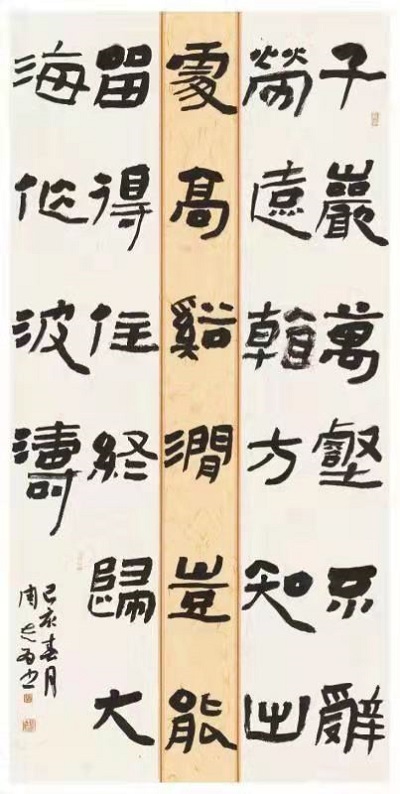 千巖萬壑不辭
勞遠看方知出
處高谿澗豈能
留得住終歸大
海作波濤
己亥春月
周书